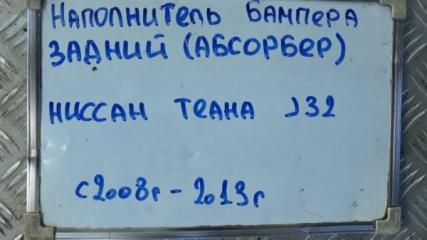 НАПОЛНИТЕЛЬ БАМПЕРА
ЗАДНИЙ (АБСОРБЕР)
НИССАН ТЕАНА J32
С 2008г - 2013г